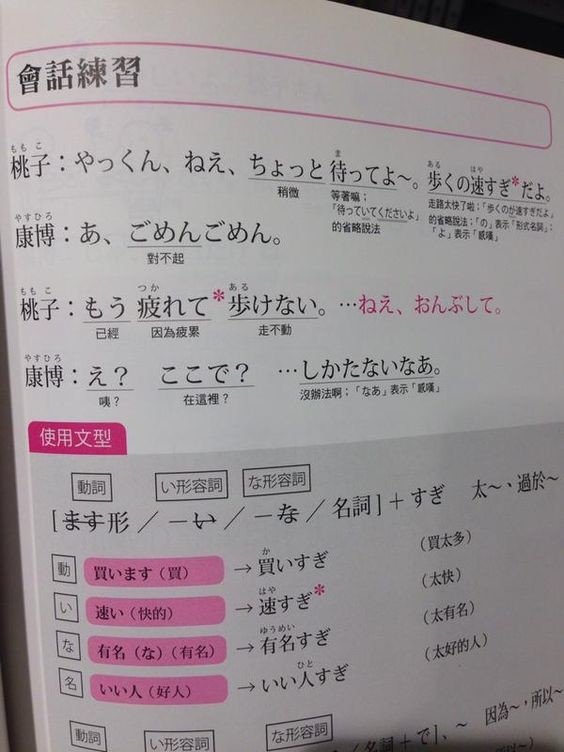 會話練習
ももこ ま ある はや
桃子：やっくん、ねえ、ちょっと待ってよ～。歩くの速すぎ*だよ。
稍微 等著嘛； 走路太快了啦；「歩くのが速すぎだよ」
「待っていてくださいよ」 的省略說法；「の」表示「形式名詞」；
的省略說法 「よ」表示「感嘆」
やすひろ
康博：あ、ごめんごめん。
對不起
ももこ つか ある
桃子：もう 疲れて*歩けない。…ねえ、おんぶして。
已經 因為疲累 走不動
やすひろ
康博：え？ ここで？ …しかたないなあ。
咦？ 在這裡？ 沒辦法啊；「なあ」表示「感嘆」
使用文型
動詞 い形容詞 な形容詞
[ます形／ーい／ーな／名詞]＋すぎ 太～、過於～
か
動 買います（買） →買いすぎ （買太多）
はや
い 速い（快的） →速すぎ* （太快）
ゆうめい
な 有名（な）（有名） →有名すぎ （太有名）
ひと
名 いい人（好人） →いい人すぎ （太好的人）
動詞 い形容詞 な形容詞
／名詞＋で]、～ 因為～，所以～